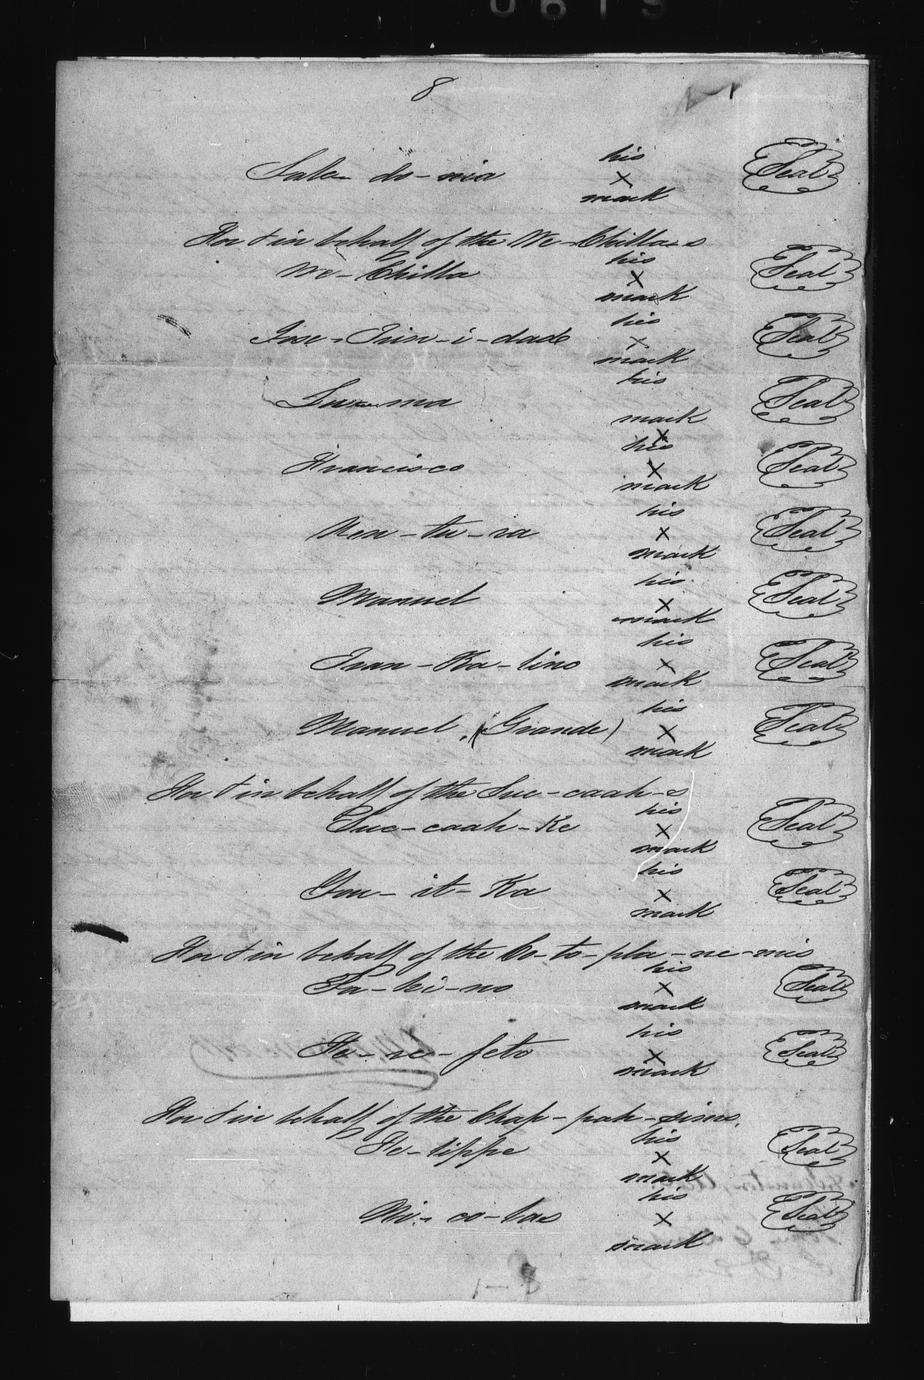 8
his
Sale-do-nia x Seal
mark
For & in behalf of the We-Chillas
his
We-Chilla x Seal
mark
his
Jose-Trin-i-dade x Seal
mark
his
mark Seal
x
his
Francisco x Seal
mark
his
Ven-tu-ra x Seal
mark
his
Manuel x Seal
mark
his
Juan-Ka-lino x Seal
mark
his
Manuel, (Grande) x Seal
mark
For & in behalf of the Suc-caah-s
his
Suc-caah-Ke x Seal
mark
his
Gou-it-Ka x Seal
mark
For & in behalf of the Co-to-pla-ne-mis
his
Pa-ki-no x Seal
mark
his
x Seal
mark
For & in behalf of the Chap-pah-sims,
his
Fe-lippe x Seal
mark
his
Ni-co-las x Seal
mark